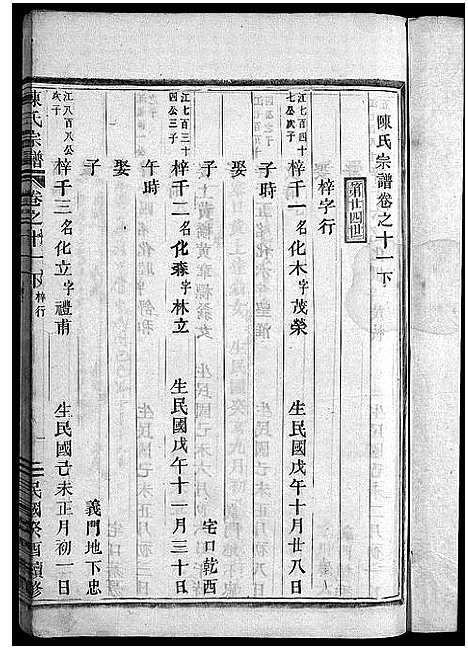 陳氏宗譜卷之十一下
第廿四世
梓字行
江七百四十七公次子
梓千一名化木字茂榮 生民國戊午十月廿八日
子時
娶 宅口乾西
子
江七百三十四公三子
梓千二名化森字林立 生民國戊午十一月三十日
午時
娶
子 義門地下忠
江八百八公長子
梓千三名化立字禮甫 生民國己未正月初一日
陳氏宗譜 卷之十一下 梓行 一 民國癸酉續修